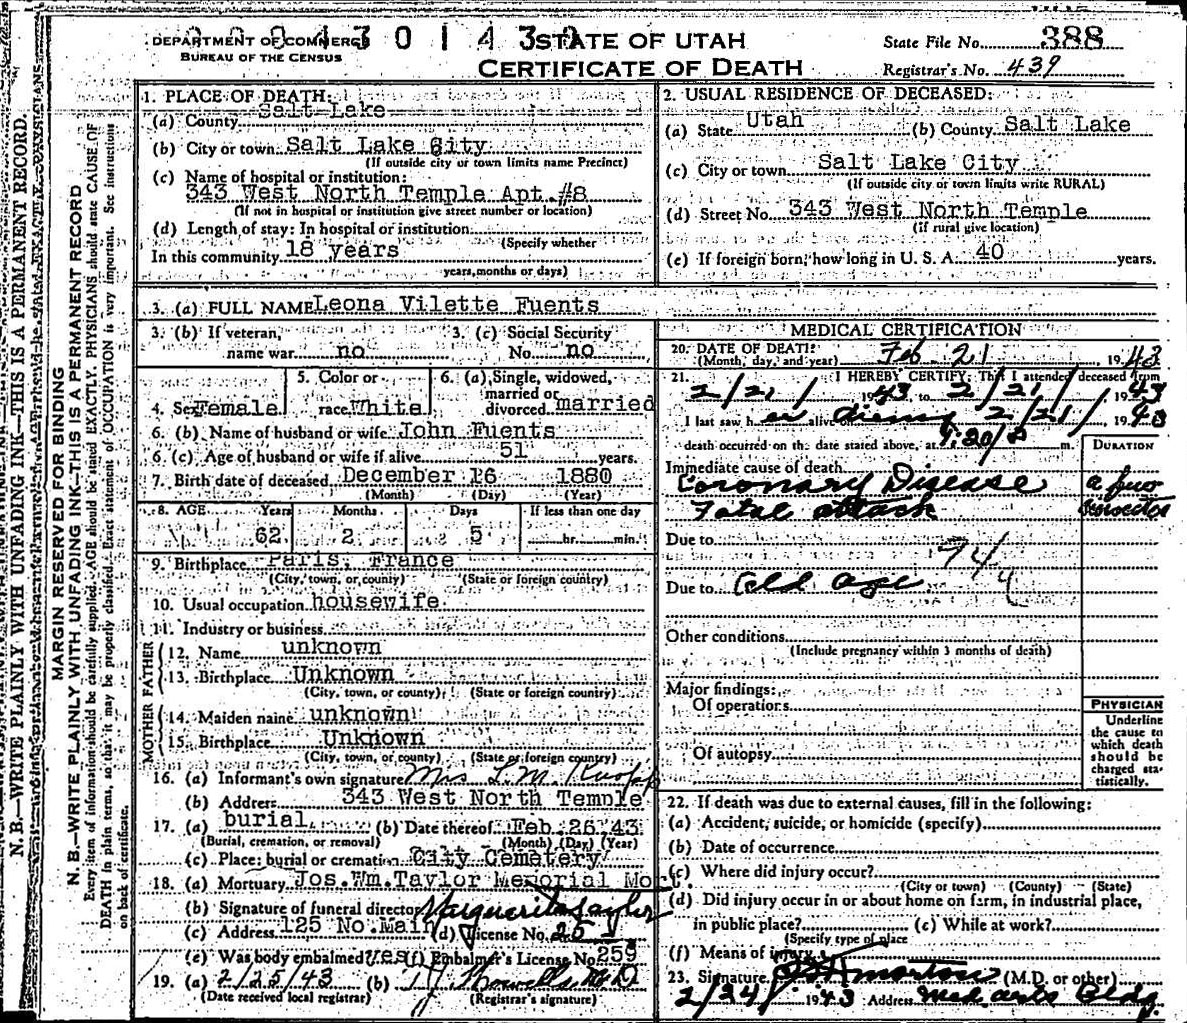 DEPARTMENT OF COMMERCE
BUREAU OF THE CENSUS
STATE OF UTAH
CERTIFICATE OF DEATH
State File No. 388
Registrar's No. 439
N. B.—WRITE PLAINLY WITH UNFADING INK—THIS IS A PERMANENT RECORD.
MARGIN RESERVED FOR BINDING
N. B.—WRITE PLAINLY WITH UNFADING INK—THIS IS A PERMANENT RECORD
Every item of information should be carefully supplied. AGE should be stated EXACTLY. PHYSICIANS should state CAUSE OF
DEATH in plain terms, so that it may be properly classified. Exact statement of OCCUPATION is very important. See instructions
on back of certificate.
1. PLACE OF DEATH:
(a) County Salt Lake
(b) City or town Salt Lake City
(If outside city or town limits name Precinct)
(c) Name of hospital or institution:
343 West North Temple Apt. #8
(If not in hospital or institution give street number or location)
(d) Length of stay: In hospital or institution
(Specify whether
In this community 18 years
years, months or days)
2. USUAL RESIDENCE OF DECEASED:
(a) State Utah (b) County Salt Lake
(c) City or town Salt Lake City
(If outside city or town limits write RURAL)
(d) Street No. 343 West North Temple
(If rural give location)
(e) If foreign born, how long in U. S. A. 40 years.
3. (a) FULL NAME Leona Vilette Fuents
3. (b) If veteran, name war no
3. (c) Social Security No. no
4. Sex Female
5. Color or race White
6. (a) Single, widowed, married or divorced married
6. (b) Name of husband or wife John Fuents
6. (c) Age of husband or wife if alive 51 years.
7. Birth date of deceased December 16 1880
(Month) (Day) (Year)
8. AGE Years Months Days If less than one day
62 2 5 hr. min.
9. Birthplace Paris, France
(City, town, or county) (State or foreign country)
10. Usual occupation housewife
11. Industry or business
FATHER
12. Name unknown
13. Birthplace Unknown
(City, town, or county) (State or foreign country)
MOTHER
14. Maiden name unknown
15. Birthplace Unknown
(City, town, or county) (State or foreign country)
16. (a) Informant's own signature Mrs L. M.
(b) Address 343 West North Temple
17. (a) burial (b) Date thereof Feb. 26, 43
(Burial, cremation, or removal) (Month) (Day) (Year)
(c) Place: burial or cremation City Cemetery
18. (a) Mortuary Jos. Wm. Taylor Memorial Mort.
(b) Signature of funeral director Marguerite Taylor
(c) Address 125 No. Main (d) License No. 25
(e) Was body embalmed? yes (f) Embalmer's License No. 259
19. (a) 2/25/43 (b) M D
(Date received local registrar) (Registrar's signature)
MEDICAL CERTIFICATION
20. DATE OF DEATH:
(Month, day, and year) Feb 21 1943
21. I HEREBY CERTIFY, That I attended deceased from
2/21/ 1943 to 2/21/ 1943
I last saw her alive on 2/21/ 1943
death occurred on the date stated above, at m.
DURATION
Immediate cause of death
Coronary Disease a few
Fatal attack
Due to
94/a
Due to Old age
Other conditions
(Include pregnancy within 3 months of death)
Major findings:
Of operations
Of autopsy
PHYSICIAN
Underline
the cause to
which death
should be
charged sta-
tistically.
22. If death was due to external causes, fill in the following:
(a) Accident, suicide, or homicide (specify)
(b) Date of occurrence
(c) Where did injury occur?
(City or town) (County) (State)
(d) Did injury occur in or about home on farm, in industrial place,
in public place? (e) While at work?
(Specify type of place
(f) Means of injury
23. Signature Morton (M.D. or other)
2/24/ 1943 Address Med. Arts Bldg